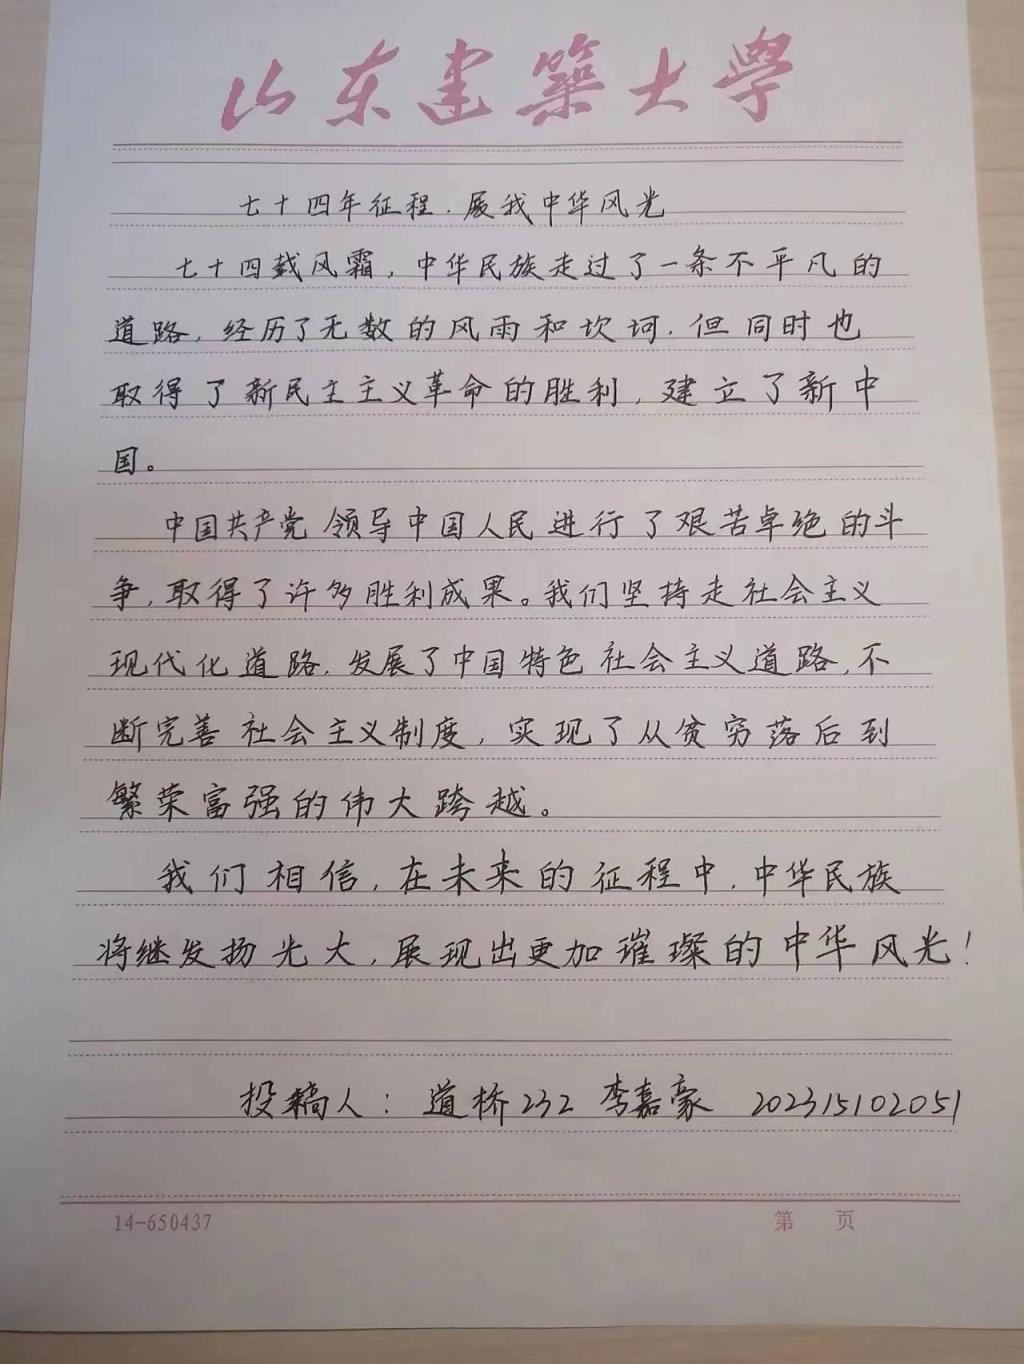 山东建築大學
七十四年征程.展我中华风光
七十四载风霜,中华民族走过了一条不平凡的
道路,经历了无数的风雨和坎坷.但同时也
取得了新民主主义革命的胜利,建立了新中
国。
中国共产党领导中国人民进行了艰苦卓绝的斗
争,取得了许多胜利成果。我们坚持走社会主义
现代化道路.发展了中国特色社会主义道路,不
断完善社会主义制度,实现了从贫穷落后到
繁荣富强的伟大跨越。
我们相信,在未来的征程中.中华民族
将继发扬光大,展现出更加璀璨的中华风光!
投稿人:道桥232 李嘉豪 202315102051
14-650437 第 页